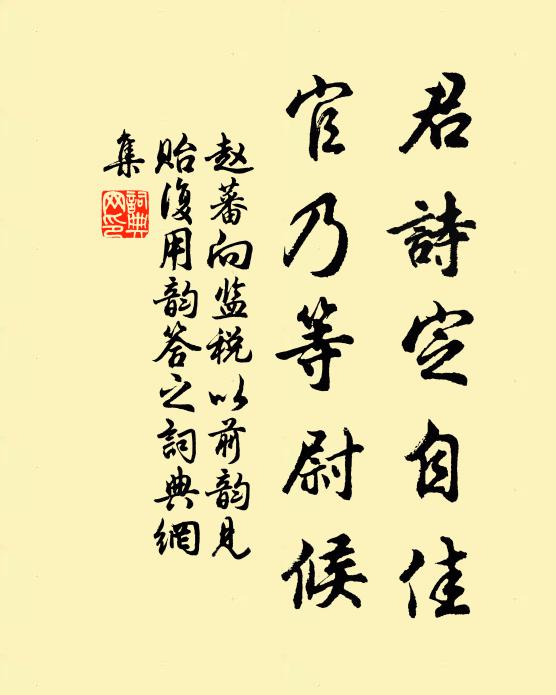 君詩定自佳
官乃等尉候
赵蕃向监税以前韵见
贻復用韵答之詞典網
集
詞典網印